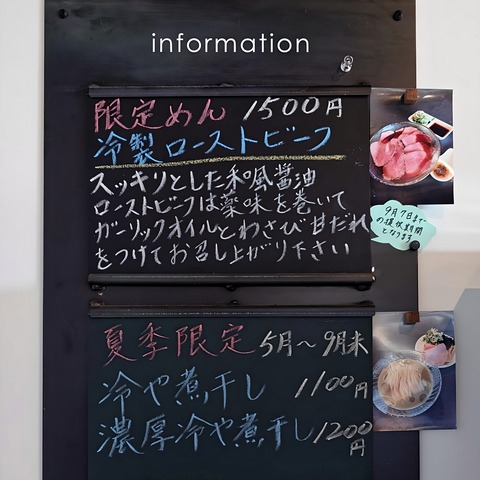 information
限定めん 1500円
冷製ローストビーフ
スッキリとした和風醤油
ローストビーフは薬味を巻いて
ガーリックオイルとわさび甘だれ
をつけてお召し上がり下さい
9月7日まで
の提供期間
となります
夏季限定 5月〜9月末
冷や煮干し 1100円
濃厚冷や煮干し 1200円